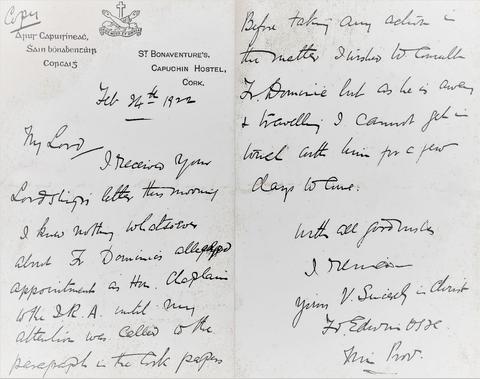 Copy
Árus Capuiríneać,
Sain bonabentúir
Corcaiġ
St Bonaventure's,
Capuchin Hostel,
Cork.
Feb 24th 1922
My Lord
I received your
Lordship's letter this morning
I know nothing whatsoever
about Fr Dominic's alleged
appointment as Hon. Chaplain
to the I.R.A. until my
attention was called to the
paragraph in the Cork papers
Before taking any action in
the matter I wished to consult
Fr. Dominic but as he is away
& travelling I cannot get in
touch with him for a few
days to come.
with all good wishes
I remain
yours V. Sincerely in Christ
Fr. Edwin OSFC
Min Prov.